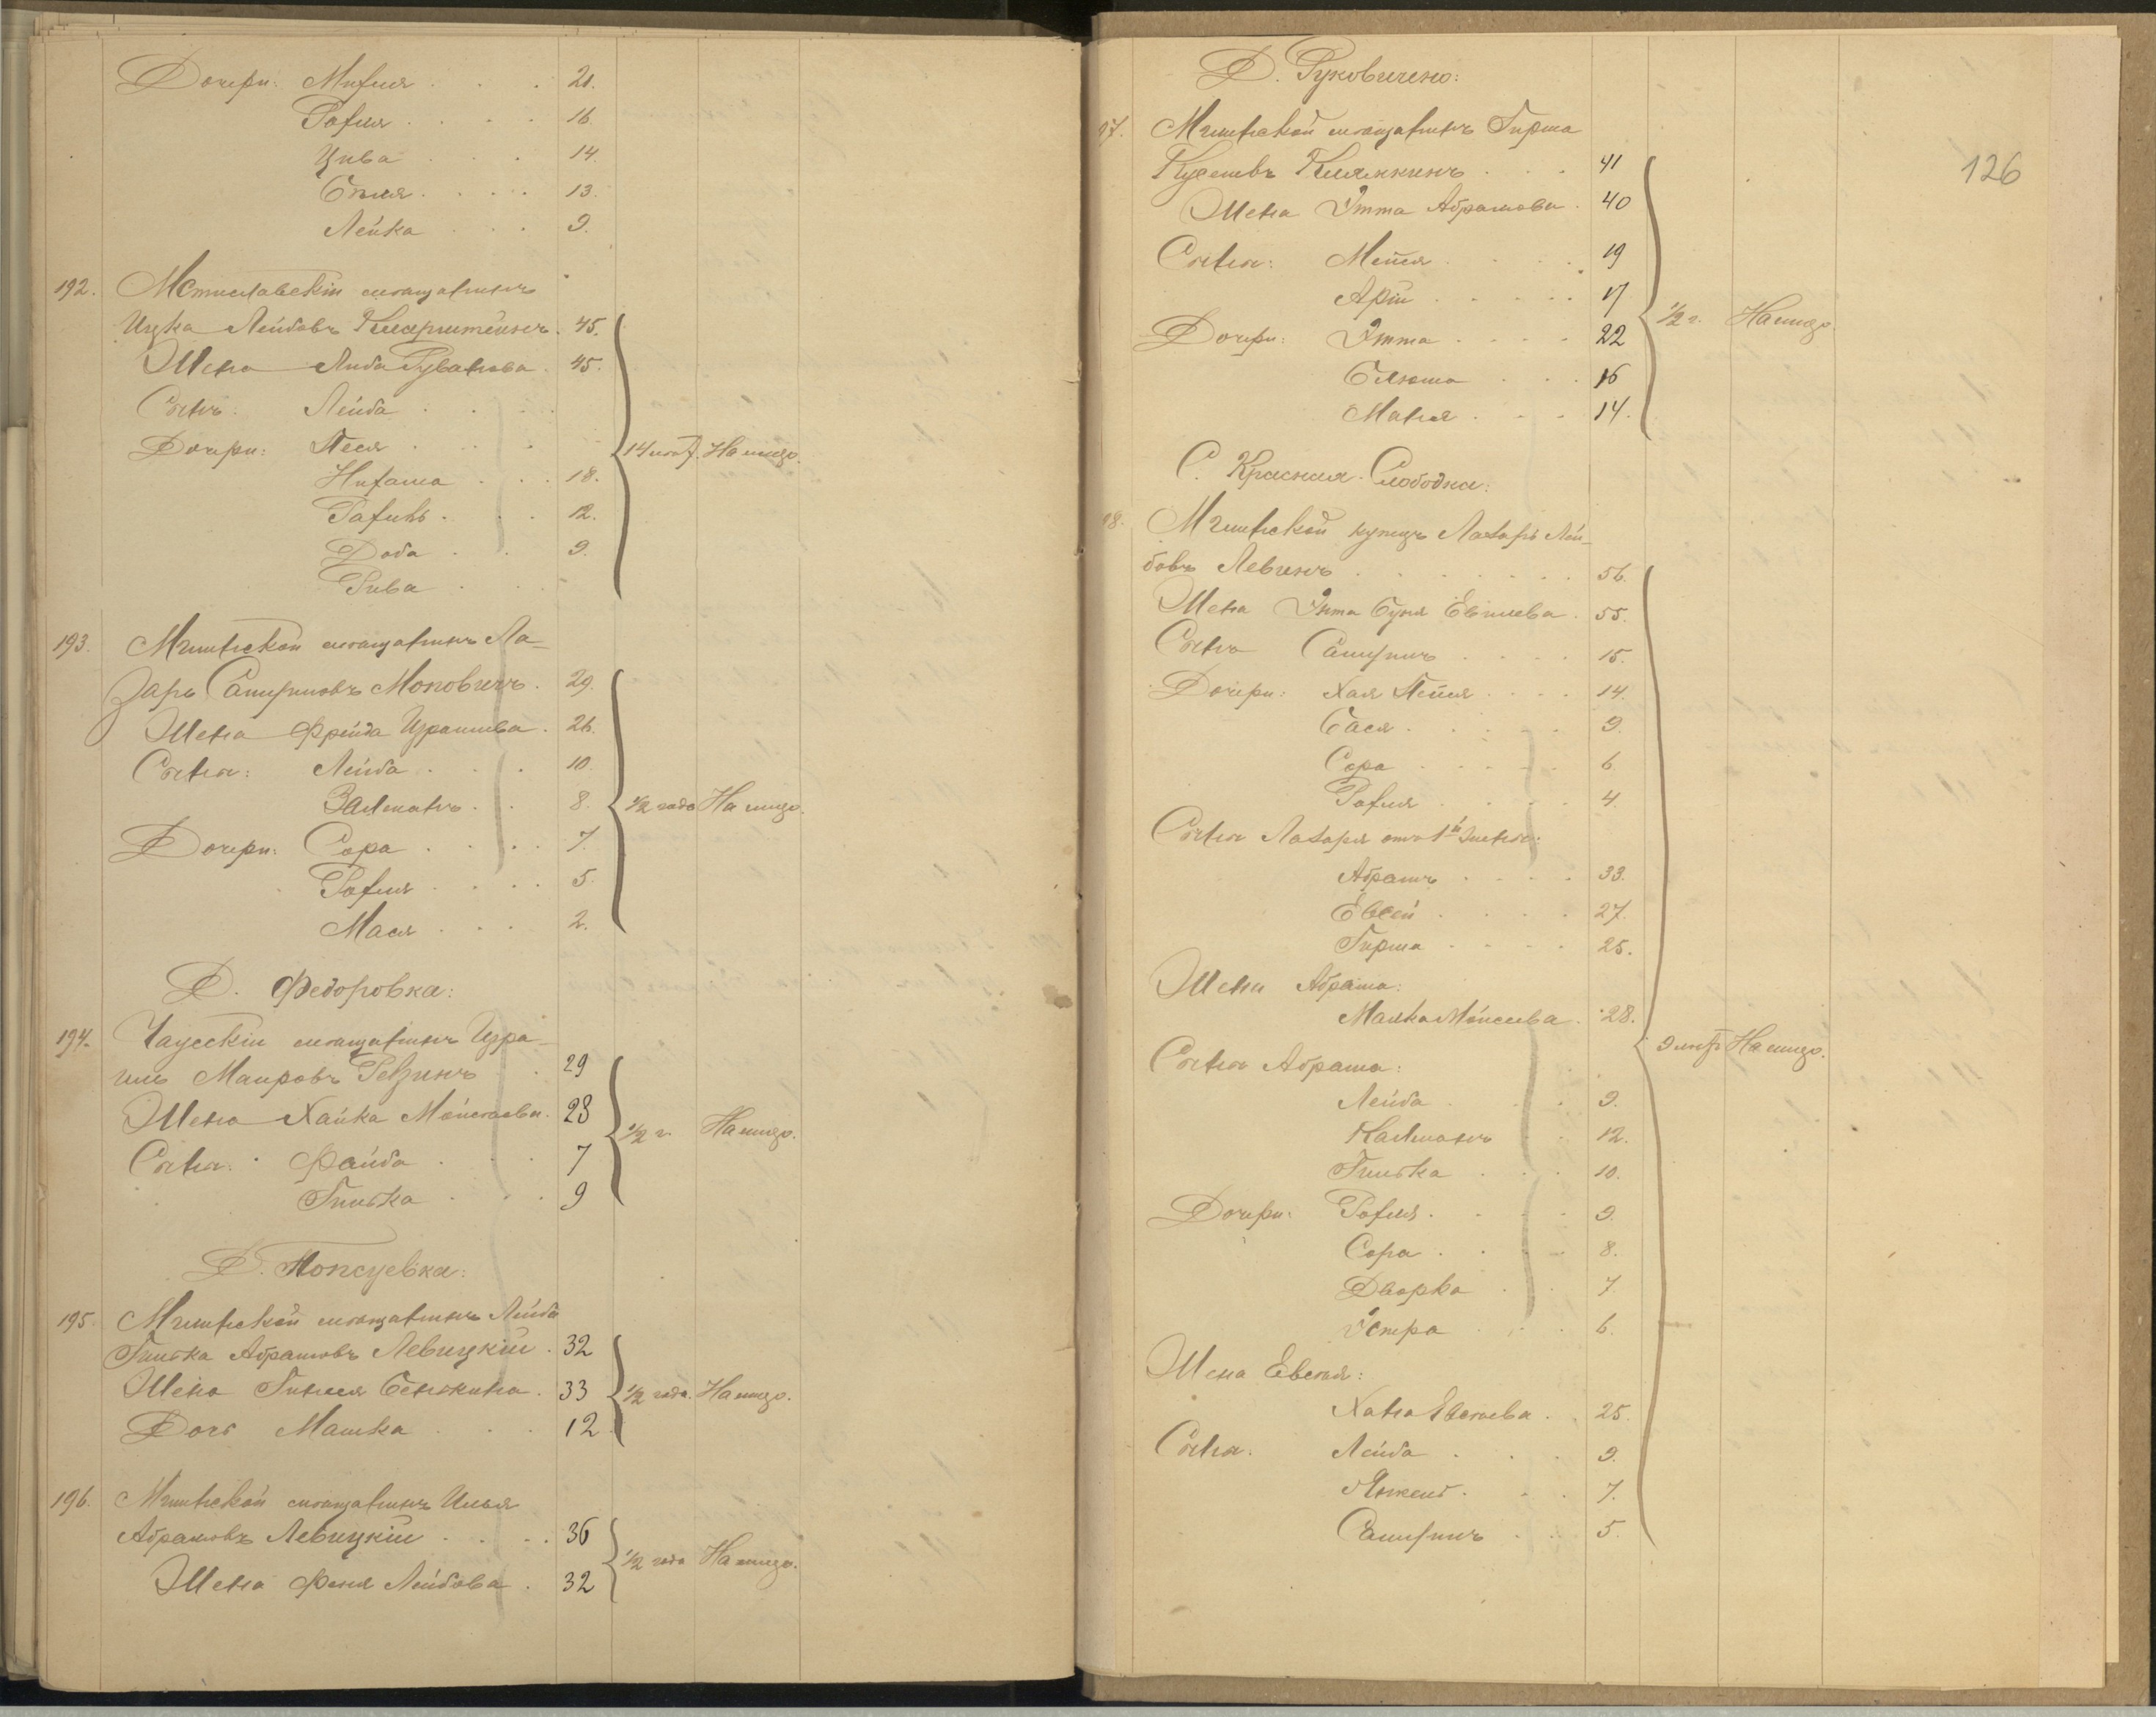 Дочери: Михля . . . 21.
Рохля . . . . 16.
Цива . . . 14.
Бейля . . . . 13.
Лейка . . . 9.
192. Мстиславскій мѣщанинъ
Ицка Лейбовъ Клерштейнъ. 45.
Жена Либа Руванова. 45.
Сынъ: Лейба . . . .
Дочери: Песя . . . .
Нихама . . . 18.
Рахиль . . . 12.
Доба . . 9.
Рива .
14 лѣтъ. На лицо.
193. Мглинской мѣщанинъ Ла-
зарь Самуиловъ Моповичъ. 29.
Жена Фрейда Израилева. 26.
Сыны: Лейба . . . 10.
Залманъ . . 8.
Дочери: Сора . . . . 7.
Рохля . . . . 5.
Мася . . . 2.
1/2 года На лицо.
Д. Федоровка:
194. Чаусскій мѣщанинъ Изра-
иль Маировъ Ревзинъ . 29
Жена Хайка Моисѣева. 28
Сыны: Файба . . . 7
Гилька . . . 9
1/2 г. На лицо.
Д. Попсуевка:
195. Мглинской мѣщанинъ Лейба
Гилька Абрамовъ Левицкій . 32
Жена Гинеля Бенькина. 33
Дочь Машка . . . 12
1/2 года. На лицо.
196. Мглинской мѣщанинъ Илья
Абрамовъ Левицкій . . . . 36
Жена Феня Лейбова . 32
1/2 года На лицо.
126
Д. Руковичено:
97. Мглинской мѣщанинъ Гирша
Куселевъ Клячкинъ . . . 41
Жена Этта Абрамова . 40
Сыны: Мейся . . . . 19
Арій . . . . . 17
Дочери: Этта . . . . 22
Блюма . . . 16
Маня . . . 14.
1/2 г. На лицо.
С. Красная-Слободка:
98. Мглинской купецъ Лазарь Лей-
бовъ Левинъ . . . . . . . 56.
Жена Эта Буня Евилева . 55.
Сынъ Самуилъ . . . . 15.
Дочери: Хая Пейся . . . . 14.
Бася . . . . . 9.
Сора . . . . . 6.
Рохля . . . . 4.
Сыны Лазаря отъ 1й жены:
Абрамъ . . . . 33.
Евсей . . . . 27.
Гирша . . . . 25.
Жена Абрама:
Малка Моисеева . 28.
Сыны Абрама:
Лейба . . . 9.
Калманъ . . 12.
Гилька . . . 10.
Дочери: Рохля . . . . 9.
Сора . . . . 8.
Дворка . . . 7.
Эстра . . . 6.
Жена Евсѣя:
Хана Евсѣева . . 25.
Сыны: Лейба . . . 9.
Янкель . . . 7.
Самуилъ . . . 5.
9 лѣтъ На лицо.